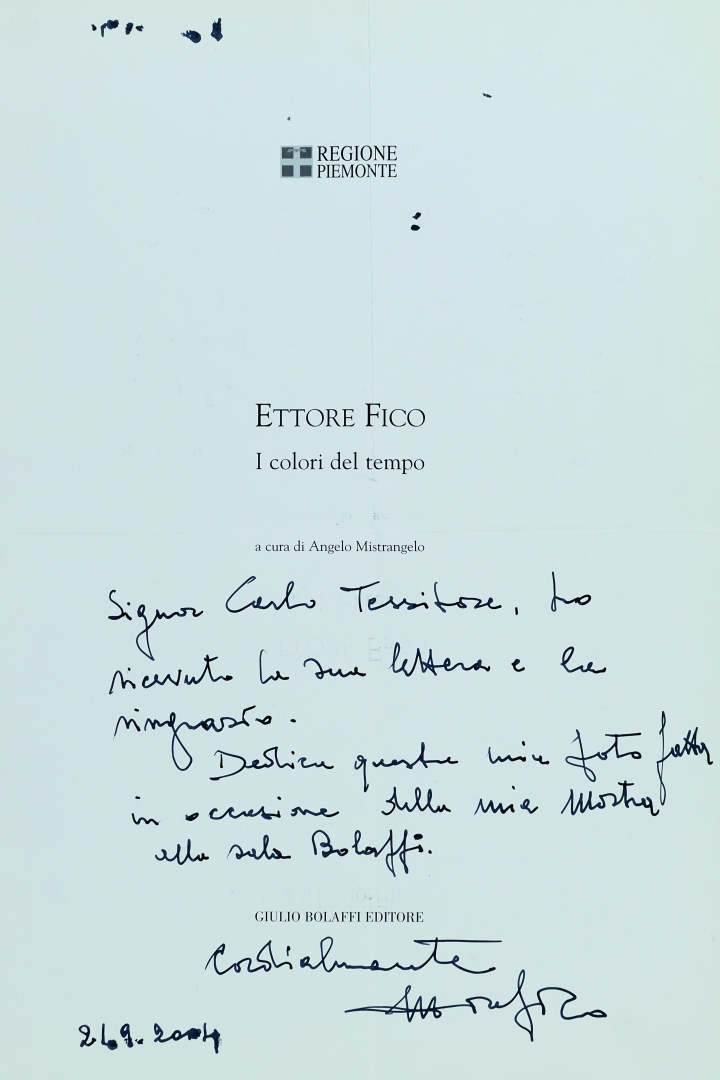 REGIONE
PIEMONTE
ETTORE FICO
I colori del tempo
a cura di Angelo Mistrangelo
Signor Carlo Tessitore, ho
ricevuto la sua lettera e la
ringrazio.
Dedico questa mia foto fatta
in occasione della mia Mostra
alla sala Bolaffi.
GIULIO BOLAFFI EDITORE
Cordialmente
Ettore Fico
2004